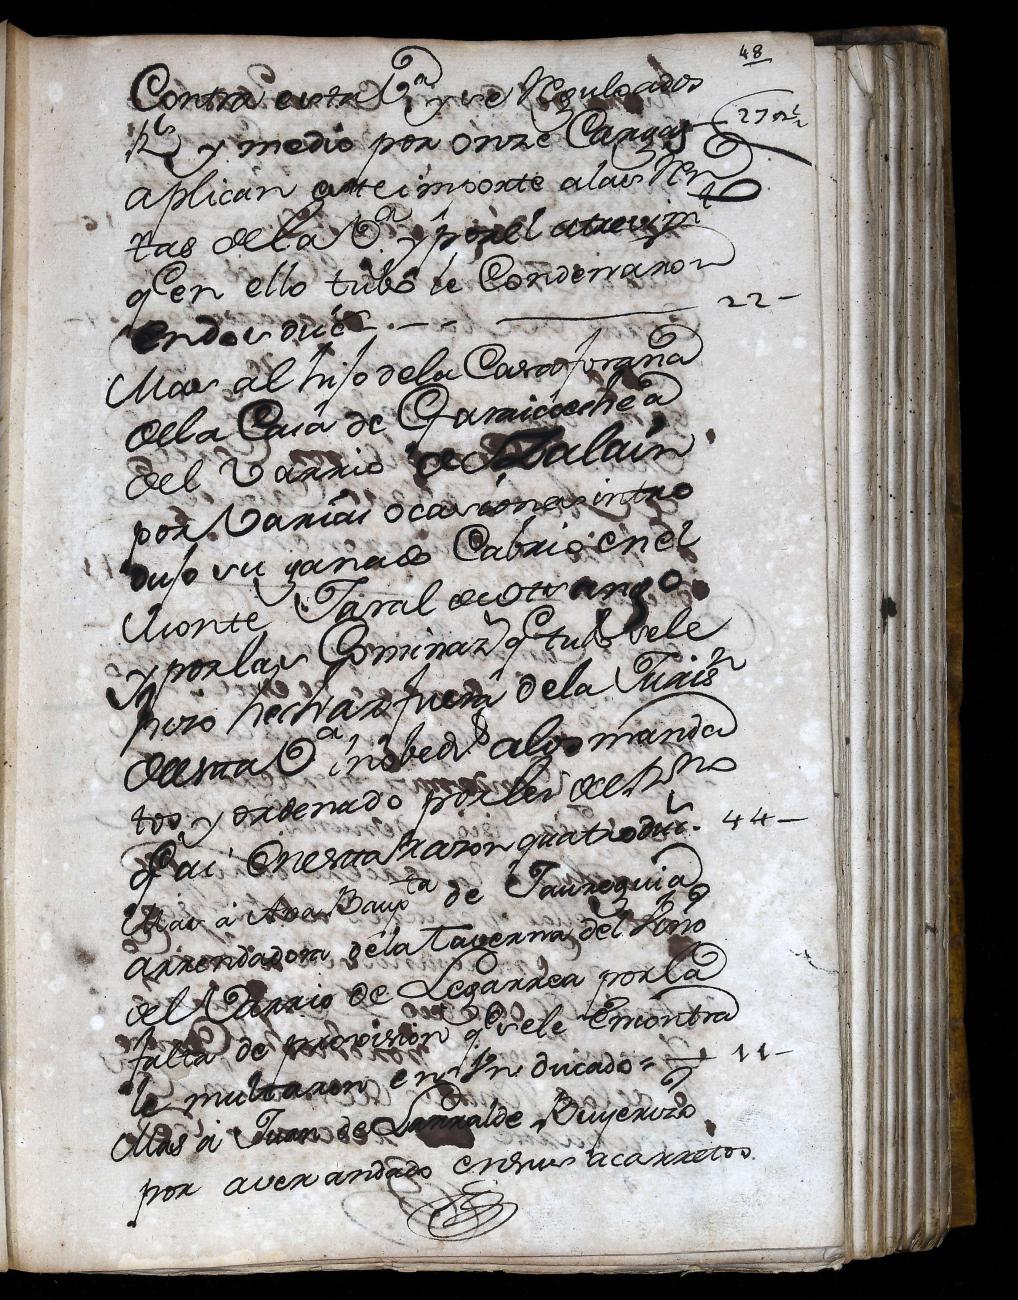 48
Contra esta Vª y se Regulo a dos
Rs y medio por onze Cargas 27 rs ½
aplican este importe a las Ren
tas de la Vª y por el atrevimto
qe en ello tubo le Condenaron
en dos ducs 22
Mas al hijo dela Casa forana
della Casa de Garaicoechea
del Varrio de Zalain
por Varias ocasiones intro
dujo su ganado Cabrio en el
Monte Jaral de
y por las qe tubo sele
hizo hechar fuera dela Jurisn
de esta Vª inobedo alos manda
tos y ordenado por los de
qai En esta razon quatro ducs 44
Mas a Ana Bauta de Jaureguia
arrendadora dela Taverna del
del Varrio de Legarrea por la
falta de provision qe sele Emontra
le multaron en un ducado 11
Mas á Juan de Larralde Buyerizo
por aver andado en sus acarretos